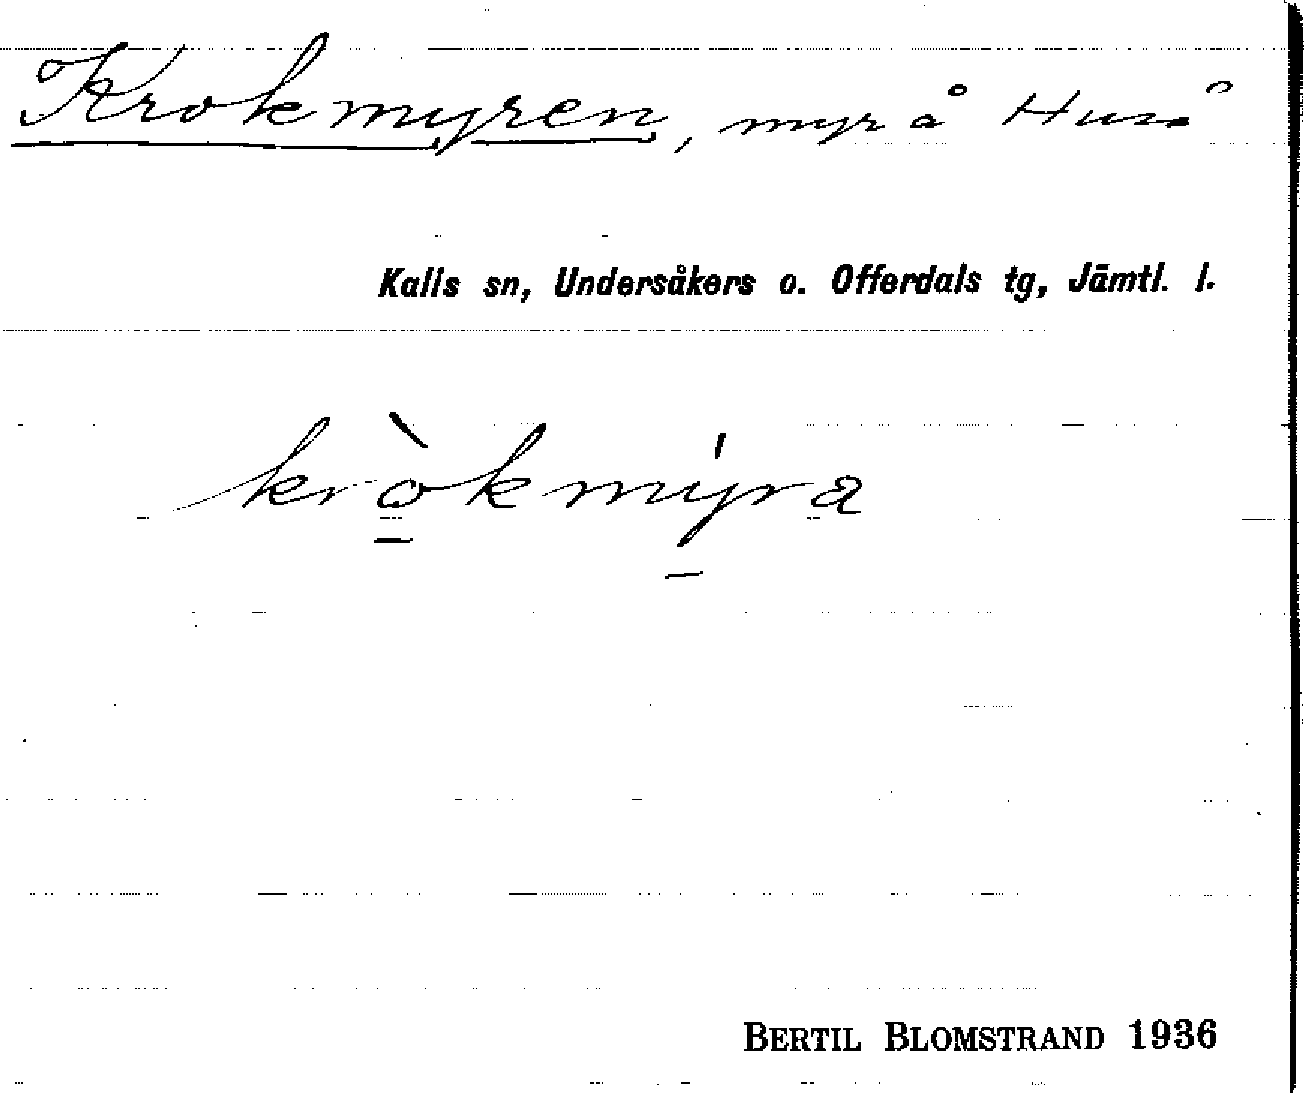 Krokmyren, myr å Huså
Kalls sn, Undersåkers o. Offerdals tg, Jämtl. l.
krò̱kmý̱ra
BERTIL BLOMSTRAND 1936